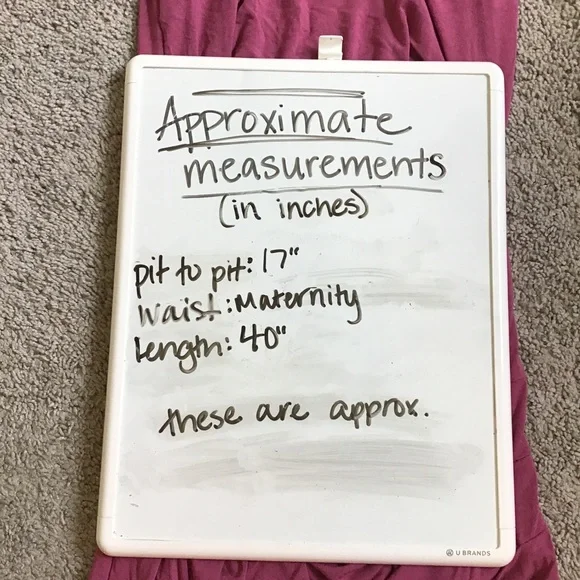 Approximate
measurements
(in inches)
pit to pit: 17"
Waist: Maternity
Length: 40"
these are approx.
U BRANDS